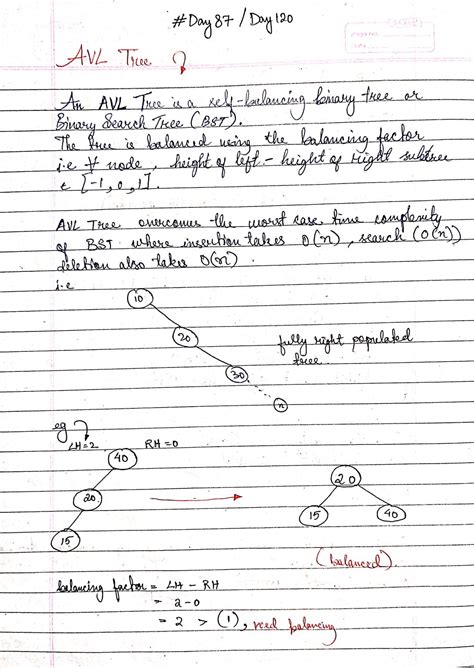 #Day 87 / Day 120
AVL Tree
An AVL Tree is a self-balancing binary tree or
Binary Search Tree (BST).
The tree is balanced using the balancing factor
i.e ∀ node, height of left - height of right subtree
∈ [-1, 0, 1].
AVL Tree overcomes the worst case time complexity
of BST where insertion takes O(n), search (O(n))
deletion also takes O(n).
i.e
10
20
30
n
fully right populated
tree.
eg
LH=2 RH=0
40
20
15
20
15 40
(balanced).
balancing factor = LH - RH
= 2-0
= 2 > (1), need balancing